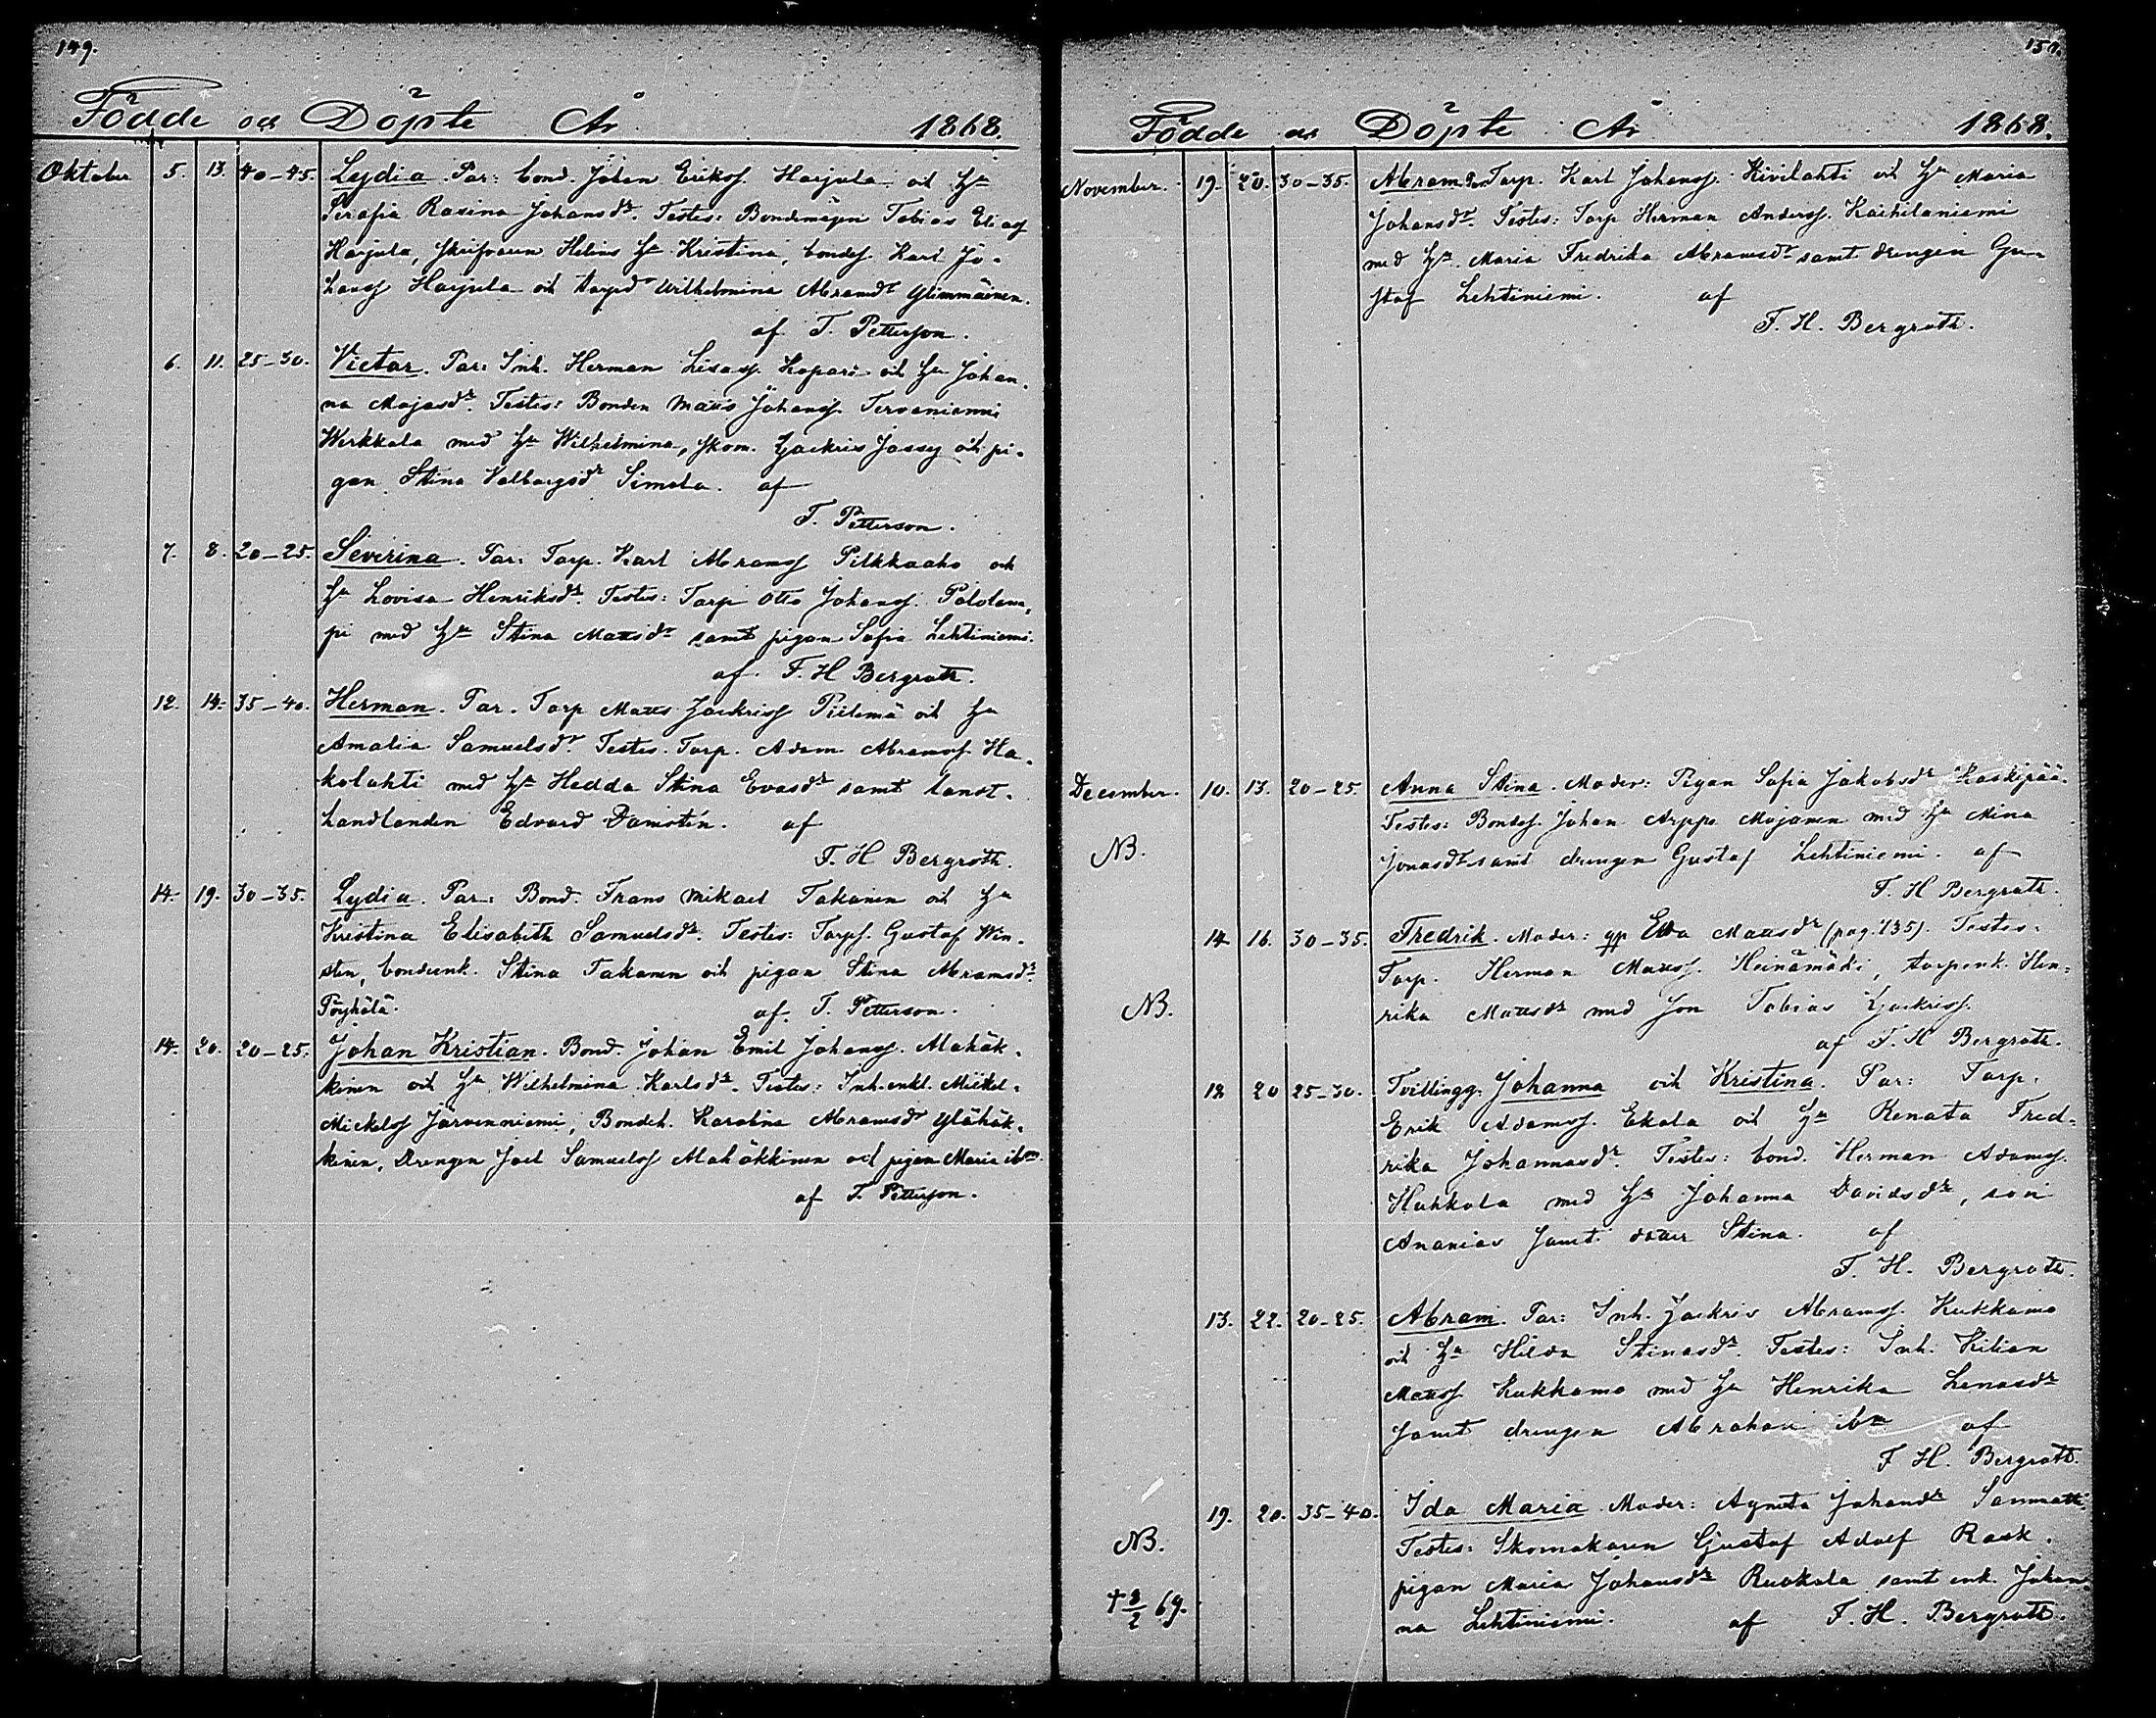 149.
Födde och Döpte År 1868.
Oktober 5. 13. 40-45. Lydia. Par: bond. Johan Erikss. Harjula och h:u
Serafia Rosina Johansdr. Testes: Bondemågen Tobias Eliass
Harjula, Helins h:u Kristina, bondes. Karl Jo-
hanss Harjula och torpd. Wilhelmina Abramdr Ylimmäinen.
af T. Petterson.
6. 11. 25-30. Victor. Par: Inh. Herman Lisass Kopari och h:u Johan-
na Majasdr. Testes: Bonden Matts Johanss. Tervaniemi
Werkkala med h:u Wilhelmina, skom. Zackris Jossy och pi-
gan Stina Valborgsdr Simola. af
T. Petterson.
7. 8. 20-25. Severina. Par: Torp. Karl Abramss Pilkkaaho och
h:u Lovisa Henriksdr. Testes: Torp Otto Johanss.
pi med h:u Stina Mattsdr samt pigan Sofia Lehtiniemi.
af F. H Bergroth.
12. 14. 35-40. Herman. Par. Torp Matts Zackriss Pielemä och h:u
Amalia Samuelsdr. Testes. Torp. Adam Abramss. Ha-
kolahti med h:u Hedda Stina Evasdr samt lant-
handlanden Edvard Damstén. af
F. H Bergroth.
14. 19. 30-35. Lydia. Par: Bond. Frans Mikael Takanen och h:u
Kristina Elisabeth Samuelsdr. Testes: Torps. Gustaf Win-
sten, bondeenk. Stina Takanen och pigan Stina Abramsdr
Pöyhölä. af. T. Petterson.
14. 20. 20-25. Johan Kristian. Bond. Johan Emil Johanss. Alahäk-
kinen och h:u Wilhelmina Karlsdr. Testes: Inh. enkl. Mickel
Mickelss Järvenniemi, Bondeh. Karolina Abramsdr Ylähäk-
kinen, Drengen Joel Samuelss Alahäkkinen och pigan Maria ibm.
af T. Petterson.
150.
Födde och Döpte År 1868.
November. 19. 20. 30-35. Abram. Par. Torp. Karl Johanss. Kivilahti och h:u Maria
Johansdr. Testes: Torp Herman Anderss. Kaihilaniemi
med h:u Maria Fredrika Abramsdr samt drengen Gu-
staf Lehtiniemi. af
F. H. Bergroth.
December. 10. 13. 20-25. Anna Stina. Moder: Pigan Sofia Jakobsdr Kaskipää.
Testes: Bondes. Johan Arppe Mojanen med h:u Mina
NB. Jonasdr samt drengen Gustaf Lehtiniemi. af
F. H Bergroth.
14 16. 30-35. Fredrik. Moder: gp Eva Mattsdr (pag. 135). Testes:
Torp. Herman Matss. Heinämäki, torpenk. Hen-
NB. rika Mattsdr med son Tobias Zackriss.
af F. H Bergroth.
12 20 25-30. Tvillingg: Johanna och Kristina. Par: Torp.
Erik Adamss. Ekola och h:u Renata Fred-
rika Johannasdr. Testes: bond. Herman Adamss.
Huhkola med h:u Johanna Davidsdr, son
Ananias samt dotter Stina. af
F. H. Bergroth.
13. 22. 20-25. Abram. Par: Inh. Zackris Abramss. Kukkamo
och h:u Hilda Stinasdr. Testes: Inh. Kilian
Matss Kukkamo med h:u Henrika Lenasdr
samt drengen Abraham ibm af
F H. Bergroth.
19. 20. 35-40. Ida Maria. Moder: Agneta Johansdr Sanmatti
NB. Testes: Skomakaren Gustaf Adolf Rask,
pigan Maria Johansdr Ruokola samt enk. Johan-
† 3/2 69. na Lehtiniemi. af F. H. Bergroth.